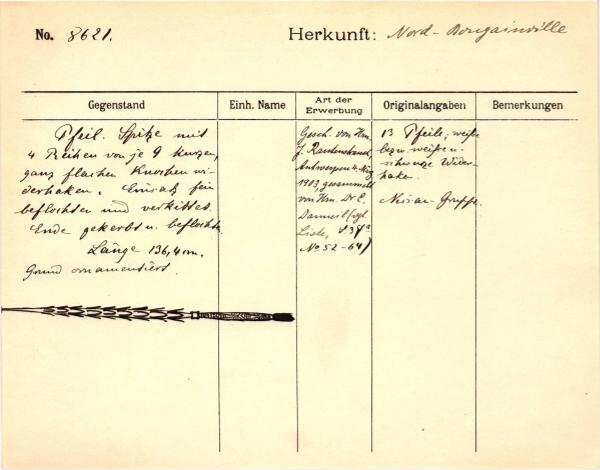 No. 8621.
Herkunft: Nord-Bougainville
Gegenstand
Einh. Name
Art der
Erwerbung
Originalangaben
Bemerkungen
Pfeil. Spitze mit
4 Reihen von je 9 kurzen,
ganz flachen Knochenwi-
derhaken. Einsatz fein
beflochten und verkittet.
Ende gekerbt u. beflochten.
Länge 136,4 cm.
Grund ornamentiert.
Gesch. von Hrn.
J. Rautenstrauch,
Antwerpen 4. Aug.
1903, gesammelt
von Hrn. Dr. E.
Liste,
No 52-64)
13 Pfeile, weiße
bezw. weißen u.
schwarze Wider-
hake.